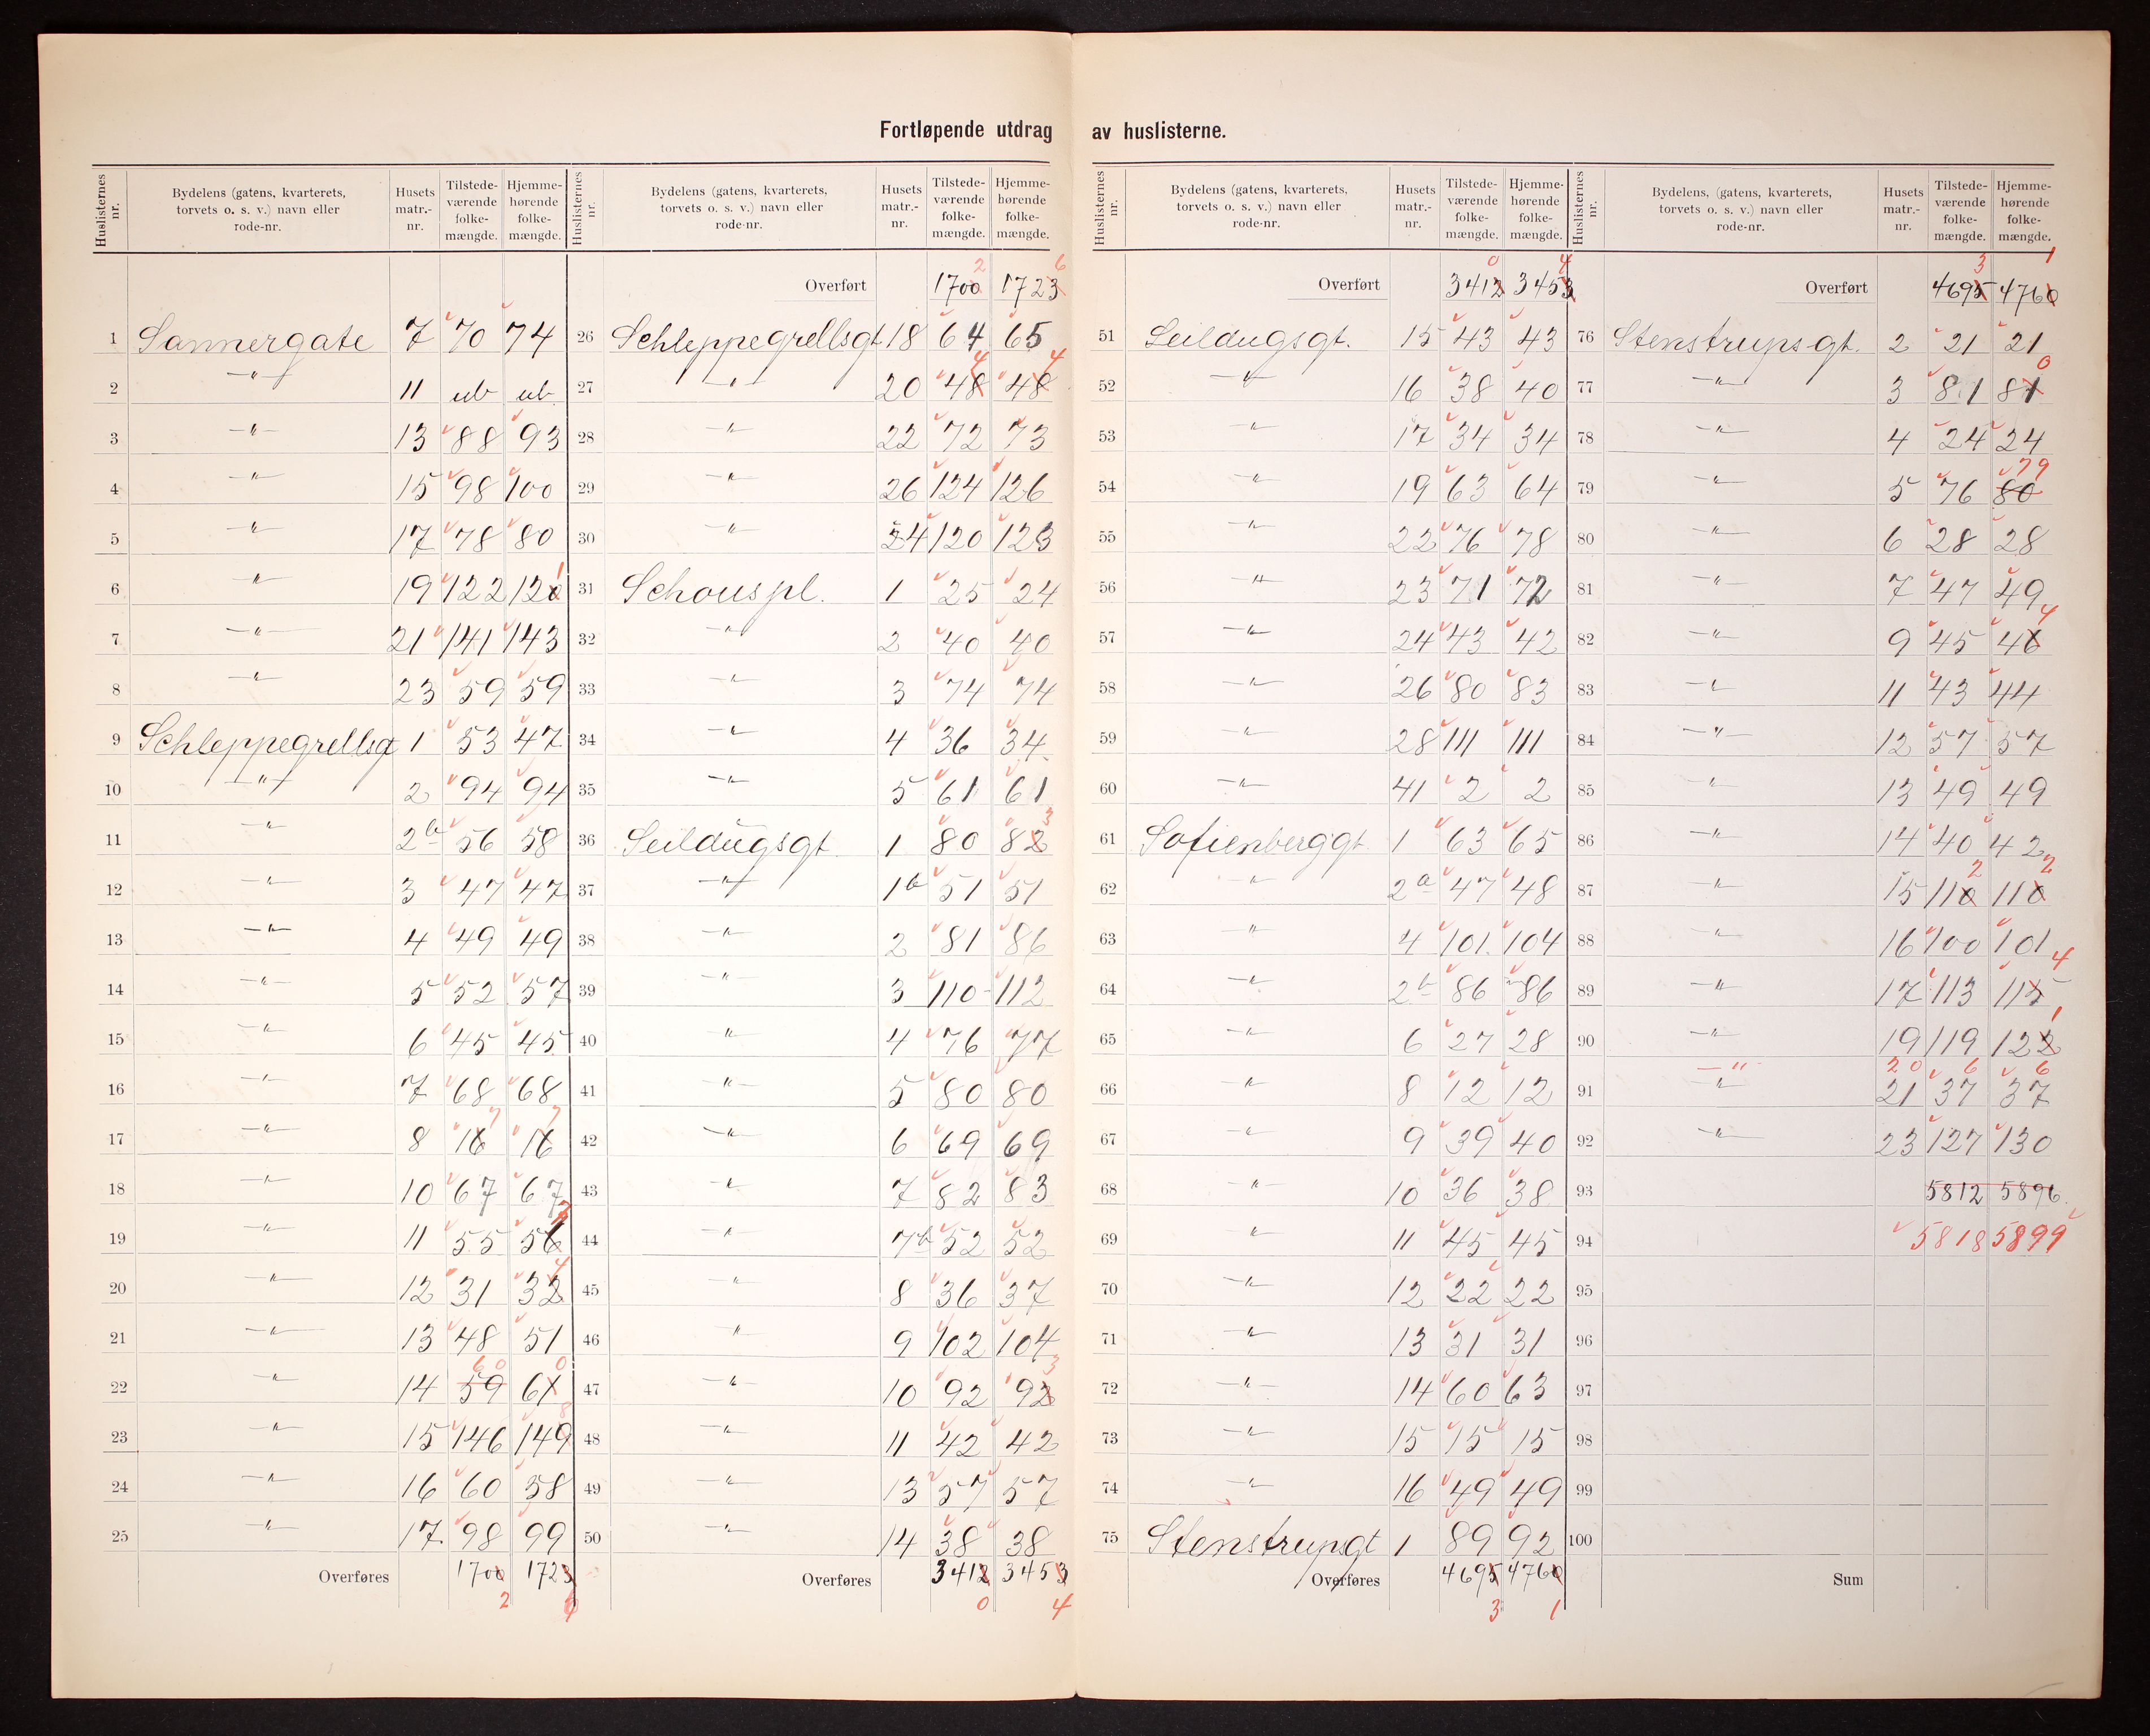 Fortløpende utdrag av huslisterne.
Huslisternes nr. | Bydelens (gatens, kvarterets, torvets o. s. v.) navn eller rode-nr. | Husets matr.-nr. | Tilstede-værende folke-mængde. | Hjemme-hørende folke-mængde.
1 Sannergate 7 70 74
2 —"— 11 ub ub
3 —"— 13 88 93
4 —"— 15 98 100
5 —"— 17 78 80
6 —"— 19 122 120 1
7 —"— 21 141 143
8 —"— 23 59 59
9 Schleppegrellsgt 1 53 47
10 —"— 2 94 94
11 —"— 2b 56 58
12 —"— 3 47 47
13 —"— 4 49 49
14 —"— 5 52 57
15 —"— 6 45 45
16 —"— 7 68 68
17 —"— 8 16 7 16 7
18 —"— 10 67 67
19 —"— 11 55 56
20 —"— 12 31 32 4
21 —"— 13 48 51
22 —"— 14 59 60 61 0
23 —"— 15 146 149 8
24 —"— 16 60 58
25 —"— 17 98 99
Overføres 1700 2 1723 6
Huslisternes nr. | Bydelens (gatens, kvarterets, torvets o. s. v.) navn eller rode-nr. | Husets matr.-nr. | Tilstede-værende folke-mængde. | Hjemme-hørende folke-mængde.
Overført 1700 2 1723 6
26 Schleppegrellsgt 18 64 65
27 —"— 20 48 4 48 4
28 —"— 22 72 73
29 —"— 26 124 126
30 —"— 24 120 123
31 Schouspl. 1 25 24
32 —"— 2 40 40
33 —"— 3 74 74
34 —"— 4 36 34
35 —"— 5 61 61
36 Seildugsgt. 1 80 82 3
37 —"— 1b 51 51
38 —"— 2 81 86
39 —"— 3 110 112
40 —"— 4 76 77
41 —"— 5 80 80
42 —"— 6 69 69
43 —"— 7 82 83
44 —"— 7b 52 52
45 —"— 8 36 37
46 —"— 9 102 104
47 —"— 10 92 92 3
48 —"— 11 42 42
49 —"— 13 57 57
50 —"— 14 38 38
Overføres 3412 0 3453 4
Huslisternes nr. | Bydelens (gatens, kvarterets, torvets o. s. v.) navn eller rode-nr. | Husets matr.-nr. | Tilstede-værende folke-mængde. | Hjemme-hørende folke-mængde.
Overført 3412 0 3453 4
51 Seildugsgt. 15 43 43
52 —"— 16 38 40
53 —"— 17 34 34
54 —"— 19 63 64
55 —"— 22 76 78
56 —"— 23 71 72
57 —"— 24 43 42
58 —"— 26 80 83
59 —"— 28 111 111
60 —"— 41 2 2
61 Sofienberggt. 1 63 65
62 —"— 2a 47 48
63 —"— 4 101 104
64 —"— 2b 86 86
65 —"— 6 27 28
66 —"— 8 12 12
67 —"— 9 39 40
68 —"— 10 36 38
69 —"— 11 45 45
70 —"— 12 22 22
71 —"— 13 31 31
72 —"— 14 60 63
73 —"— 15 15 15
74 —"— 16 49 49
75 Stenstrupsgt 1 89 92
Overføres 4695 3 4760 1
Huslisternes nr. | Bydelens, (gatens, kvarterets, torvets o. s. v.) navn eller rode-nr. | Husets matr.-nr. | Tilstede-værende folke-mængde. | Hjemme-hørende folke-mængde.
Overført 4695 3 4760 1
76 Stenstrupsgt. 2 21 21
77 —"— 3 81 81 0
78 —"— 4 24 24
79 —"— 5 76 80 79
80 —"— 6 28 28
81 —"— 7 47 49
82 —"— 9 45 46 4
83 —"— 11 43 44
84 —"— 12 57 57
85 —"— 13 49 49
86 —"— 14 40 42
87 —"— 15 110 2 110 2
88 —"— 16 100 101
89 —"— 17 113 115 4
90 —"— 19 119 122 1
—"— 20 6 6
91 —"— 21 37 37
92 —"— 23 127 130
93 5812 5896
94 5818 5899
95
96
97
98
99
100
Sum